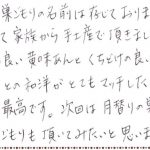 巣ごもりの名前は存じておりま
て家族から手土産で頂きまし
良い黄味あんとくちどけの良い
との和洋がとてもマッチした
最高です。次回は月替りの巣
ごもりも頂いてみたいと思いま